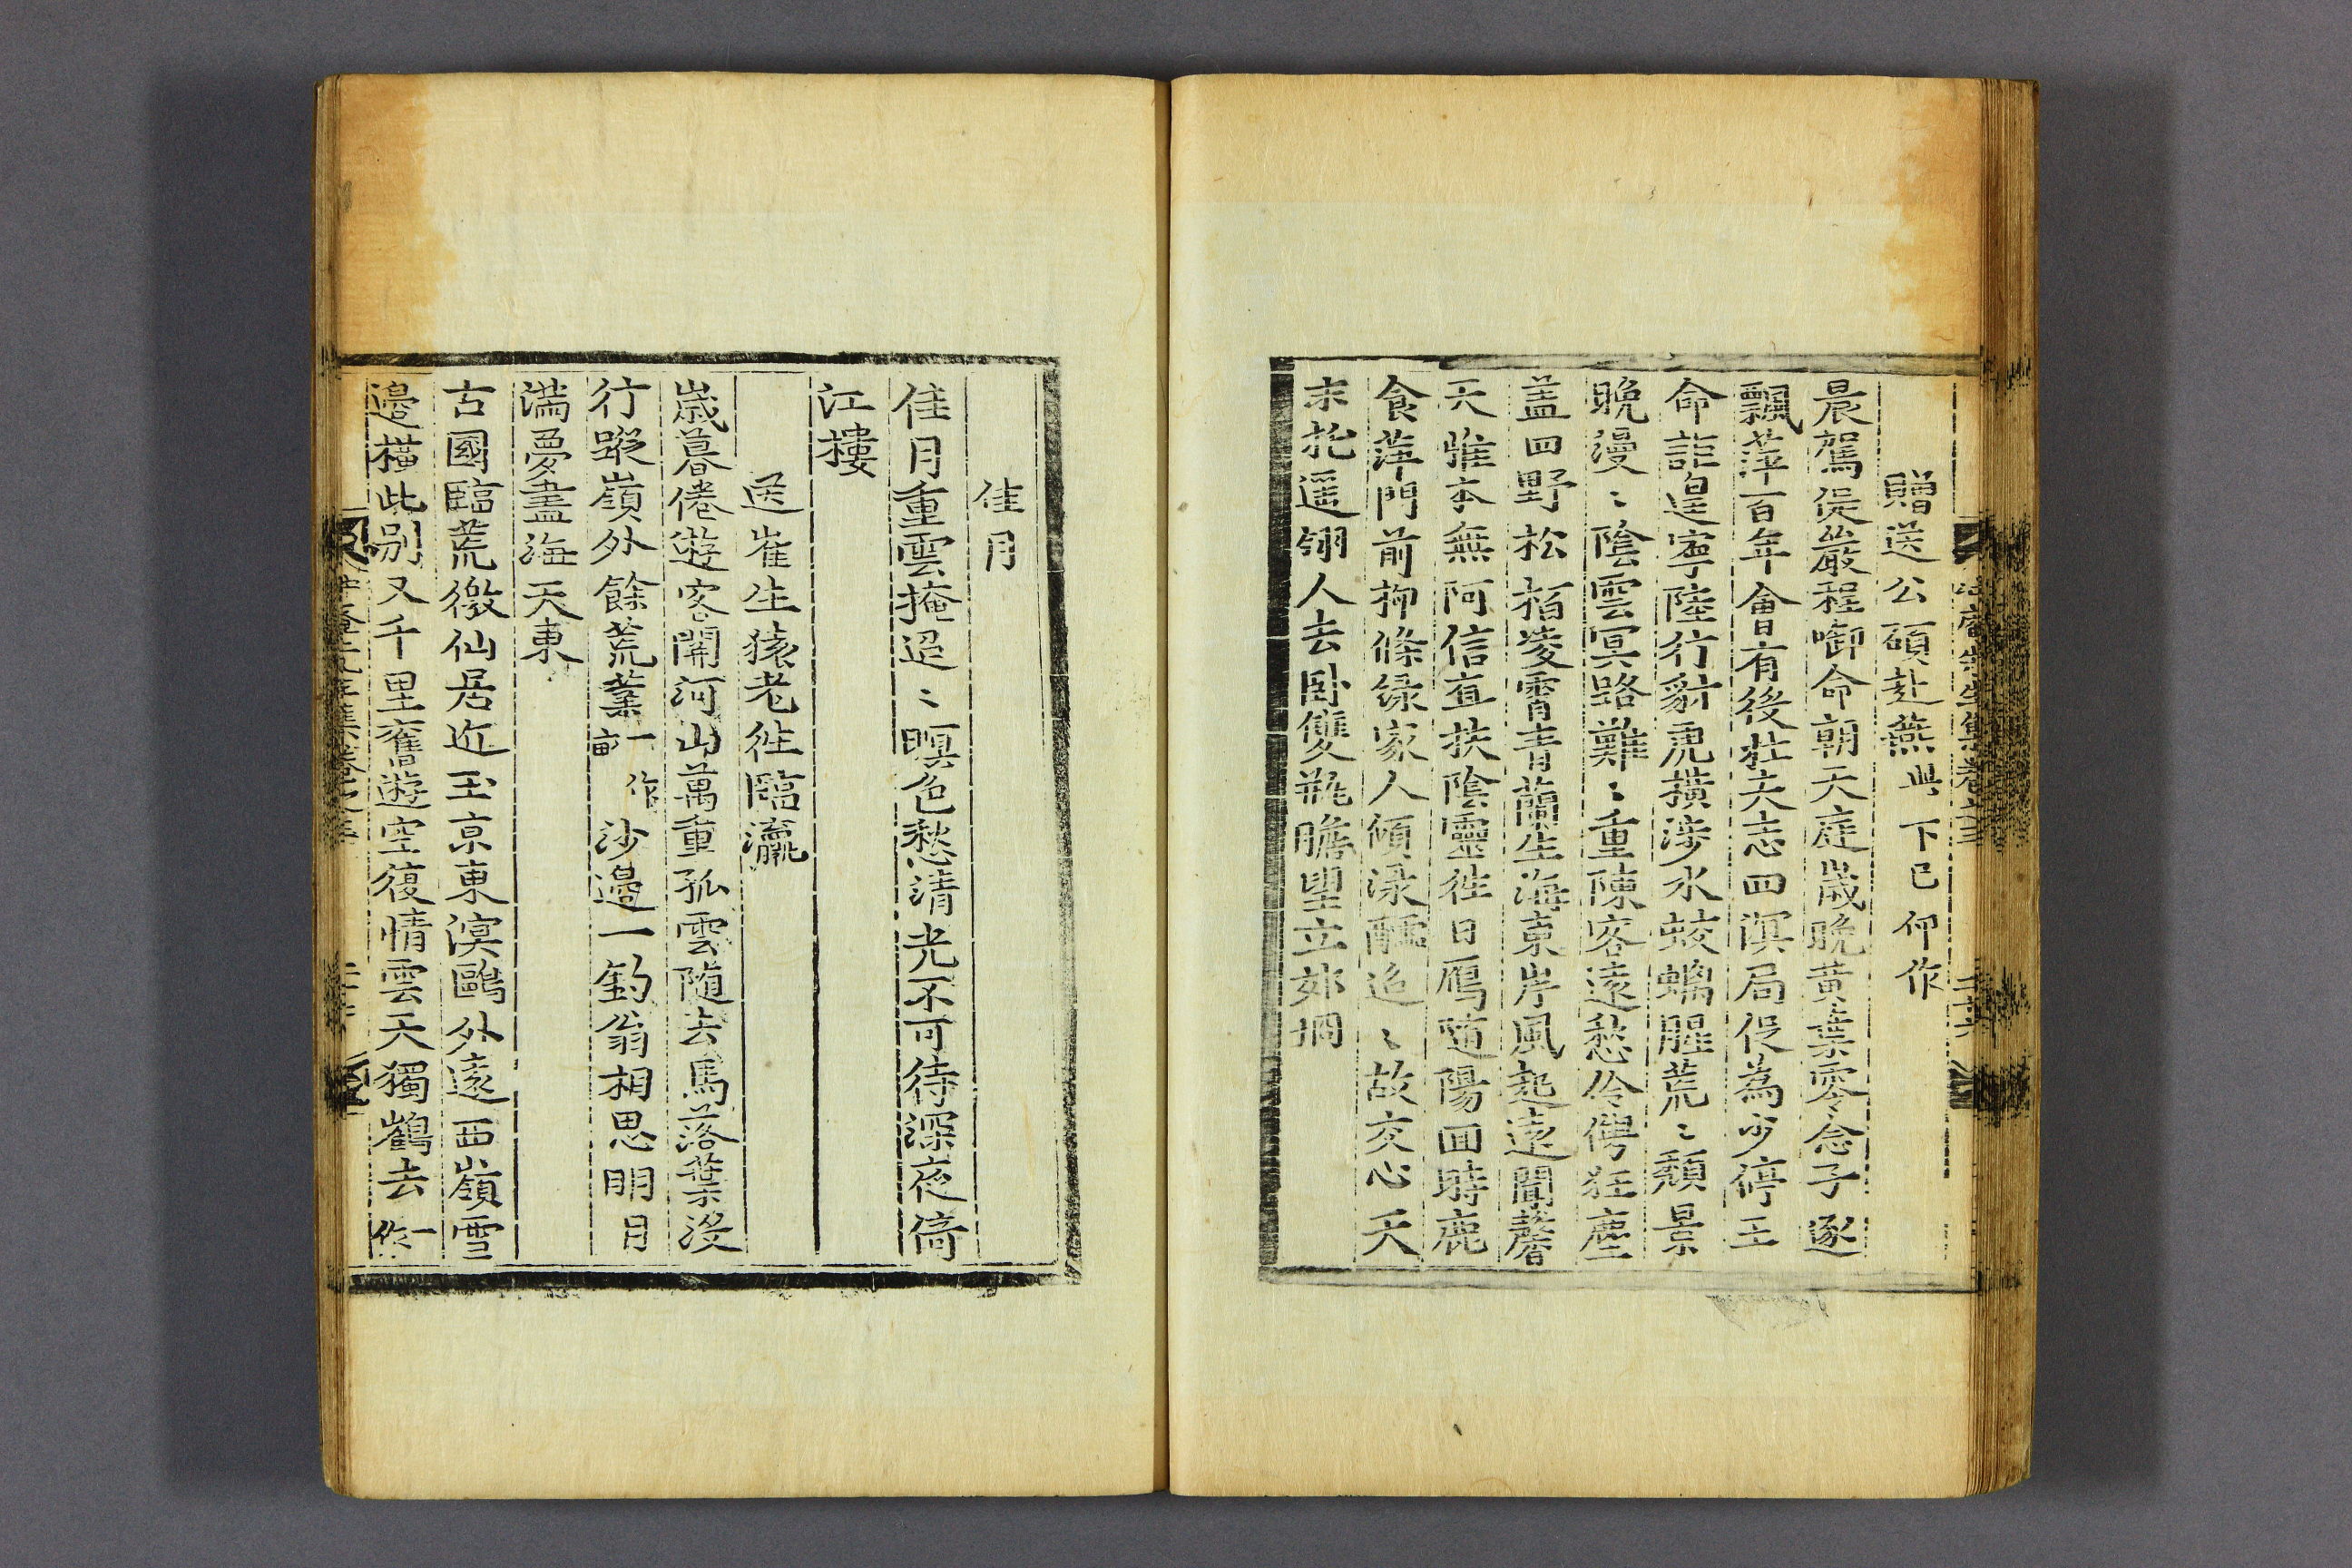 贈送公碩赴燕與下已仰作
晨駕促嚴程啣命朝天庭歲晩黃葉零念子逐
飄萍百年會有後壯夫志四溟局促爲少停王
命詎遑寧陸行豺虎橫涉水蛟螭腥荒〻頹景
晩漫〻陰雲冥路難〻重陳客遠愁伶俜狂塵
盖四野松栢凌霄青蘭生海東岸風起遠聞馨
天雖本無阿信直扶陰靈徃日鴈隨陽回時鹿
食萍門前柳條綠家人傾渌醽迢〻故交心天
末托遥翎人去臥雙甁瞻望立郊坰
佳月
佳月重雲掩迢〻暝色愁清光不可待深夜倚
江樓
送崔生猿老徃臨瀛
歲暮倦遊客關河山萬重孤雲随去馬落葉没
行蹤嶺外餘荒業一作亩沙邊一釣翁相思明月
滿夢盡海天東
古國臨荒徼仙居近玉京東溟鷗外遠西嶺雪
邊橫此別又千里舊遊空復情雲天獨鶴去一作